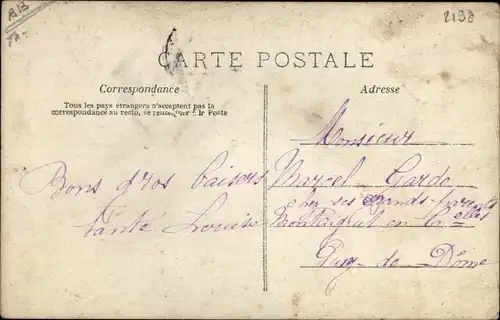 2198
CARTE POSTALE
Correspondance
Adresse
Tous les pays étrangers n'acceptent pas la
correspondance au recto, se renseigner à la Poste
Bons gros baisers
tante Louise
Monsieur
Marcel Garde
chez ses Grands parents
Montaigut en Celles
Puy-de Dôme